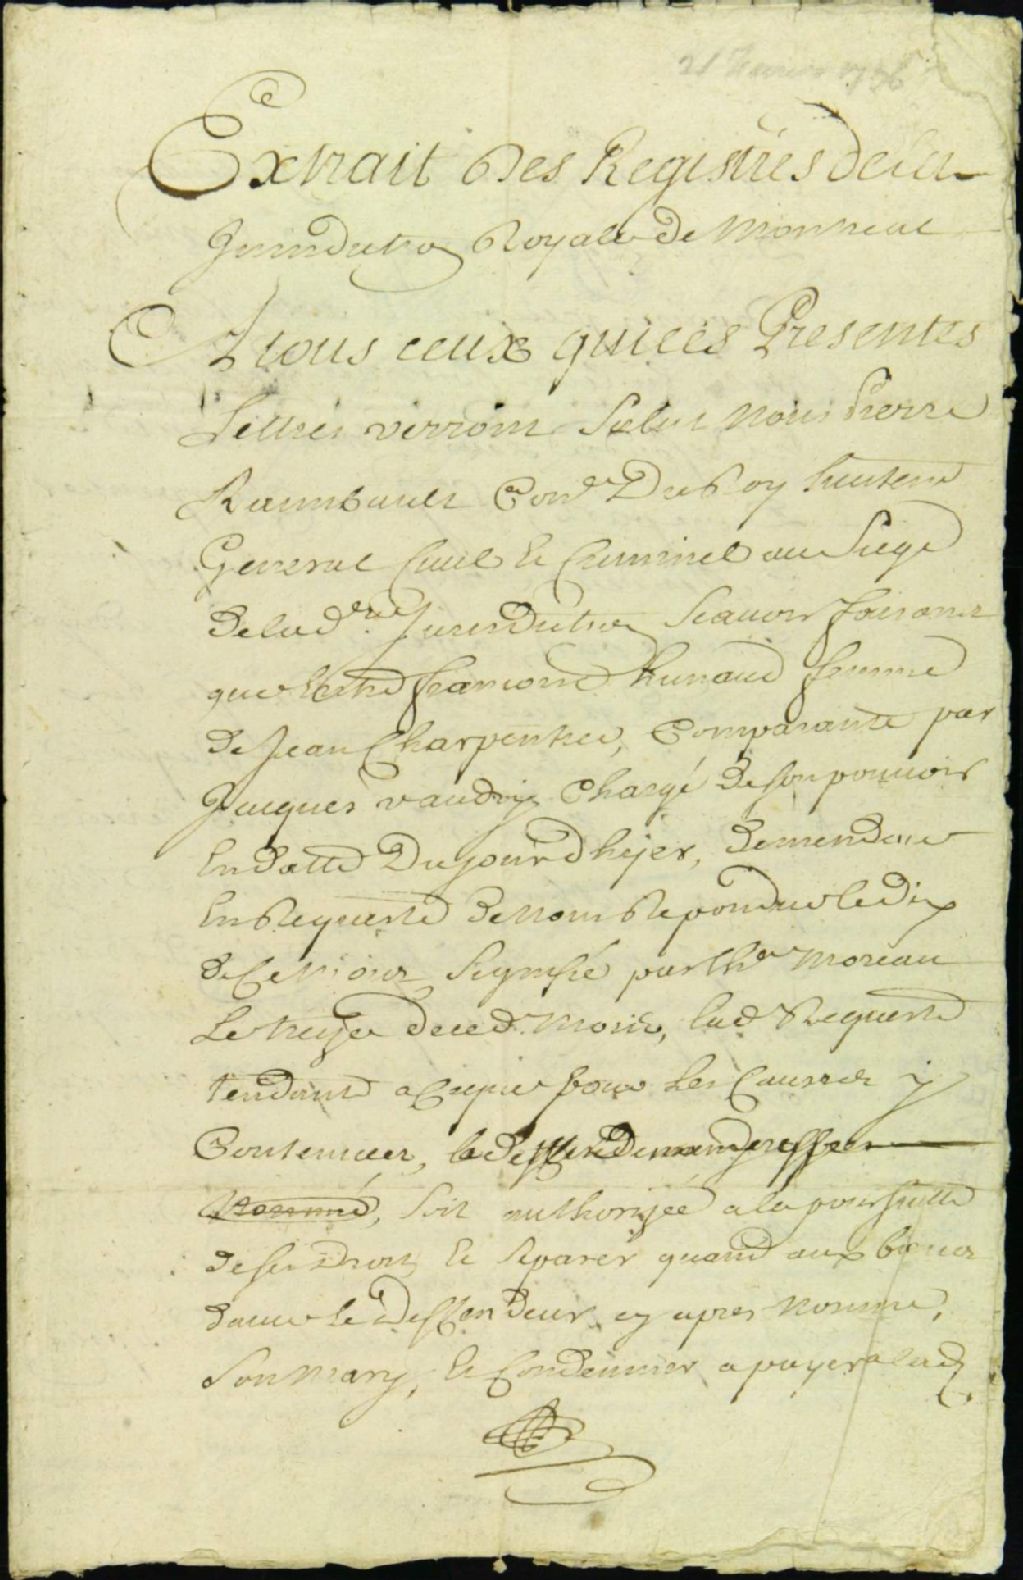 Extrait Des Registres de la
Jurisdiction Royale de Montreal
A tous ceux qui ces Presentes
Lettres verront Salut Nous Pierre
Raimbault Conr. Du Roy lieutent
General Civil et Criminel au Siege
de lad. Jurisdiction Scavoir faisons
que françoise hunaud femme
de Jean Charpentier, Comparante par
Jacques vaudry Chargé de son pouvoir
en datte Du jour d'hyer, demanderesse
en Requeste de Nous Repondue le dix
de Ce Mois signifié par lhr. Moreau
Le treize de ce d. Mois, lad Requeste
tendante a Ce que pour Les Causes y
Contenues, la de
Nommé, soit authorisée a la poursuitte
de ses Droits et separée quand aux biens
d'avec le Deffendeur cy apres Nommé,
Son Mary, et Condemner a payer a lad.